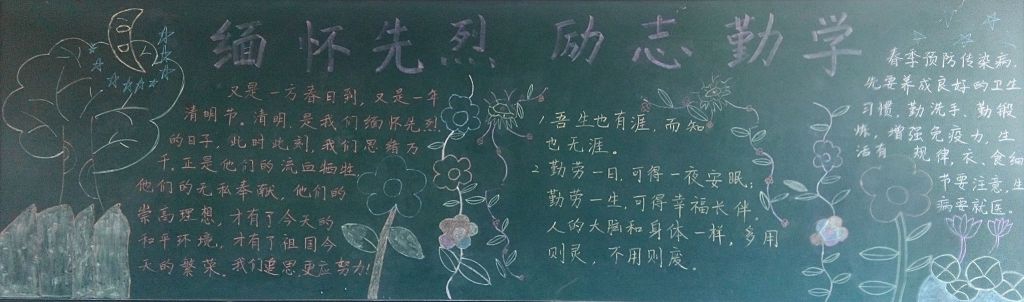 缅怀先烈 励志勤学
又是一方春日到，又是一年
清明节。清明，是我们缅怀先烈
的日子，此时此刻，我们思绪万
千，正是他们的流血牺牲，
他们的无私奉献，他们的
崇高理想，才有了今天的
和平环境，才有了祖国今
天的繁荣。我们追思更应努力！
1.吾生也有涯，而知
也无涯。
2.勤劳一日，可得一夜安眠；
勤劳一生，可得幸福长伴。
人的大脑和身体一样，多用
则灵，不用则废。
春季预防传染病，
先要养成良好的卫生
习惯，勤洗手，勤锻
炼，增强免疫力，生
活有 规律，衣、食细
节要注意，生
病要就医。